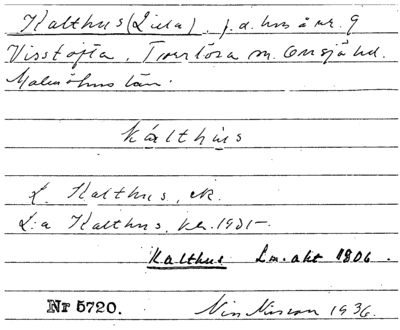 Kalthus (Lilla), f.d. hus å nr. 9
Visstofta, Trollösa sn. Onsjö hd.
Malmöhus län.
kálthùs
L. Kalthus, ek.
L:a Kalthus, ka. 1915
Kalthus Lm. akt 1806.
Nr 5720.
Nils Nilsson 1936.